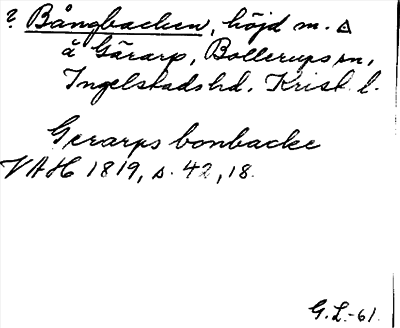 ? Bångbacken, höjd m. △
å Gärarp, Bollerups sn,
Ingelstads hd. Krist. l.
Gerarps bonbacke
VAH 1819, s. 42, 18.
G.L.-61.